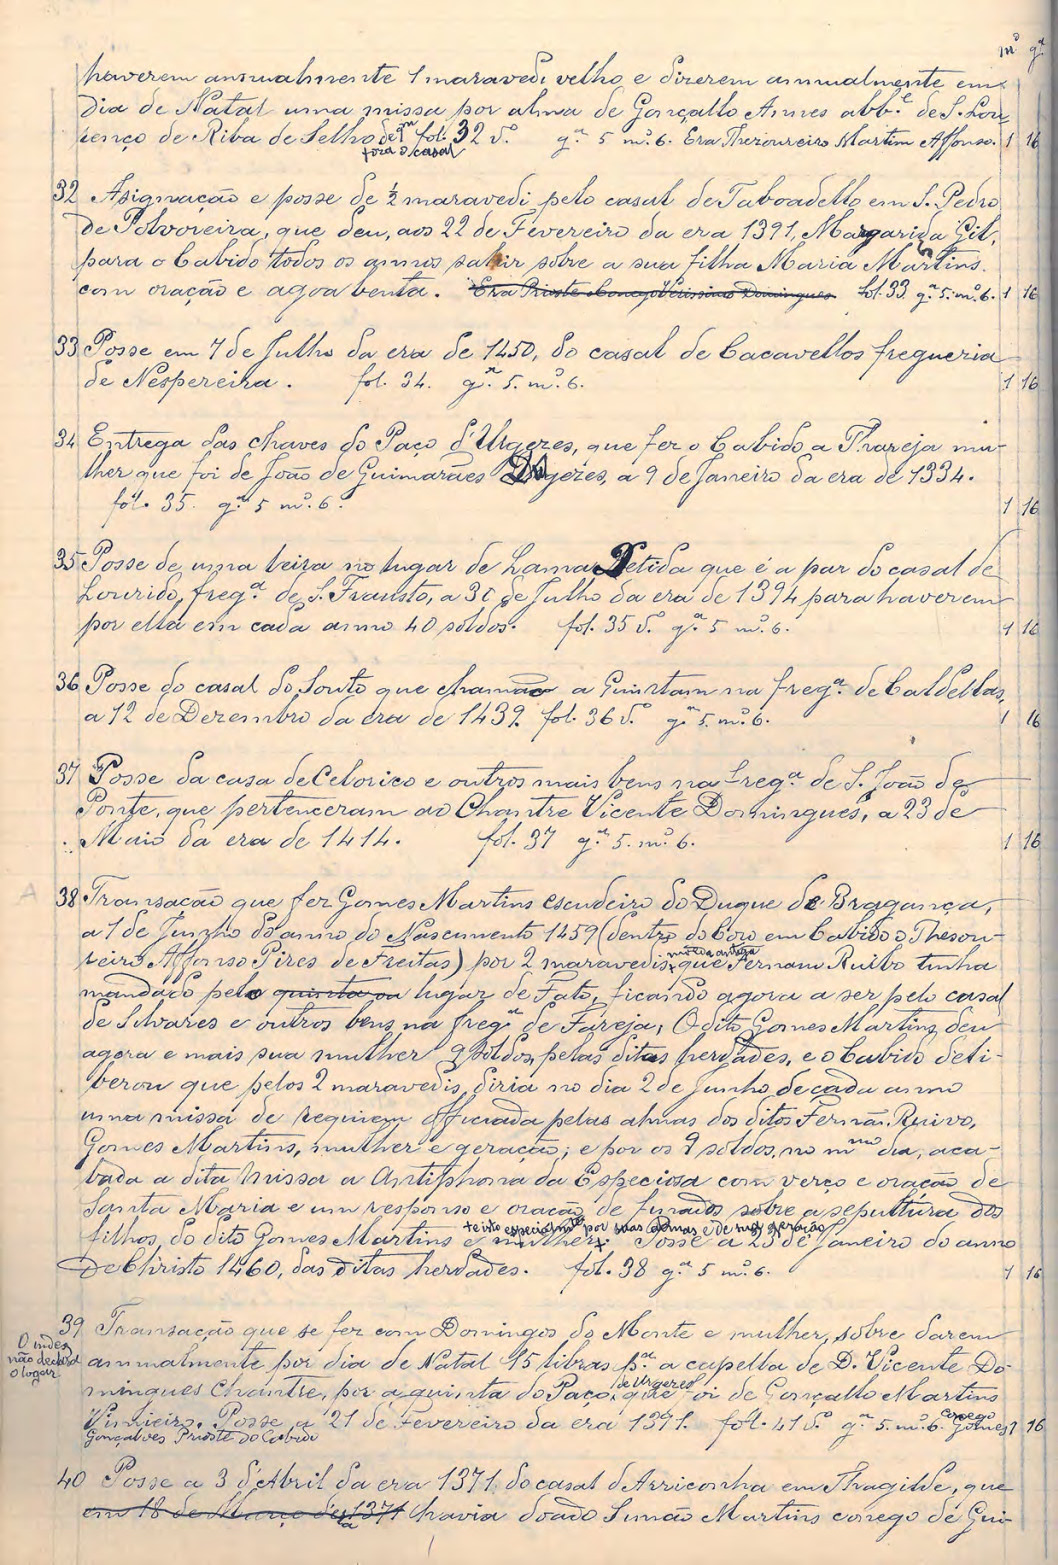 mº gª
haverem annualmente 1 maravedi velho, e dizerem annualmente em
dia de Natal uma missa por alma de Gonçallo Annes abbᵉ de S. Lou-
renço de Riba de Selho de qᵐ fora o casal fol. 32 vº gª 5 mº 6. Era Thezoureiro Martim Affonso. 1 16
32 Asignação e posse de ½ maravedi, pelo casal de Taboadello em S. Pedro
de Polvoreira, que deu, aos 22 de Fevereiro da era 1391, Margarida Gil,
para o Cabido todos os annos sahir sobre a sua filha Maria Martins.
com oração e agoa benta. Era Prioste Conego Verissimo Domingues. fol. 33 gª 5. mº 6. 1 16
33 Posse em 7 de Julho da era de 1450, do casal de Cacavellos freguezia
de Nespereira. fol. 34. gª 5. mº 6. 1 16
34 Entrega das chaves do Paço d'Urgezes, que fez o Cabido a Thareja mu-
lher que foi de João de Guimarães Durgezes, a 9 de Janeiro da era de 1334.
fol. 35. gª 5 mº 6. 1 16
35 Posse de uma leira no lugar de Lama Detida que é a par do casal de
Lourido, fregª de S. Frausto, a 30 de Julho da era de 1394 para haverem
por ella em cada anno 40 soldos. fol. 35 vº gª 5 mº 6. 1 16
36 Posse do casal do Souto que chamão a Guintam na fregª de Caldellas,
a 12 de Dezembro da era de 1439. fol. 36 vº gª 5. mº 6. 1 16
37 Posse da casa de Celorico e outros mais bens na fregª de S. João de
Ponte, que pertenceram ao Chantre Vicente Domingues, a 23 de
Maio da era de 1414. fol. 37 gª 5. mº 6. 1 16
38 Transação que fez Gomes Martins escudeiro do Duque de Bragança,
a 1 de Junho do anno do Nascimento 1459 (dentro do Coro em Cabido o Thesou-
reiro Affonso Pires de Freitas) por 2 maravedis moeda antiga que Fernam Ruivo tinha
mandado pelo quinta ou lugar de Fato, ficando agora a ser pelo casal
de Silvares e outros bens na fregª de Fareja, O dito Gomes Martins deu
agora e mais sua mulher 9 soldos, pelas ditas herdades, e o Cabido deli-
berou que pelos 2 maravedis, diria no dia 2 de Junho de cada anno
uma missa de requiem officiada pelas almas dos ditos Fernã Ruivo,
Gomes Martins, mulher e geração; e por os 9 soldos, no mᵐᵒ dia, aca-
bada a dita Missa a Antiphona da Especiosa com verço e oração de
Santa Maria e um responso e oração de finados sobre a sepultura dos
filhos do dito Gomes Martins e mulher. e isto especialmᵗᵉ por suas almas e de sua geração Posse a 23 de Janeiro do anno
de Christo 1460, das ditas herdades. fol. 38 gª 5 mº 6. 1 16
39 Transação que se fez com Domingos do Monte e mulher, sobre darem
O index
não declara
o logar
annualmente por dia de Natal 15 libras pª a capella de D. Vicente Do-
mingues Chantre, por a quinta do Paço, de Urgezes que foi de Gonçallo Martins
Vinheiro. Posse a 21 de Fevereiro da era 1391. fol. 41 vº gª 5. mº 6. Conego Gomes 1 16
Gonçalves Prioste do Cabido
40 Posse a 3 d'Abril da era 1371 do casal d'Arriconha em Thagilde, que
em 18 de Março de 1371 havia doado Simão Martins conego de Gui-